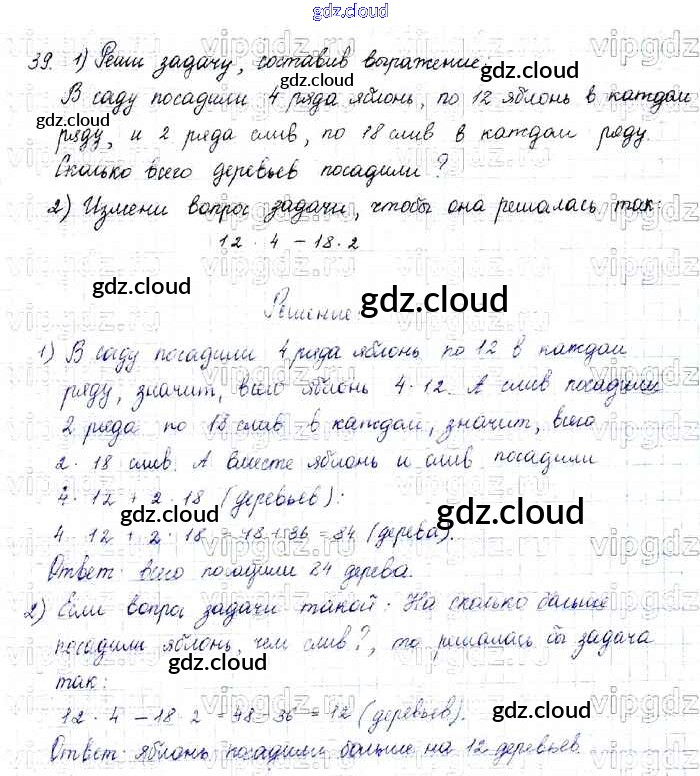 gdz.cloud
39. 1) Реши задачу, составив выражение.
В саду посадили 4 ряда яблонь, по 12 яблонь в каждом
ряду, и 2 ряда слив, по 18 слив в каждом ряду.
Сколько всего деревьев посадили?
2) Измени вопрос задачи, чтобы она решалась так:
12 · 4 − 18 · 2
Решение:
1) В саду посадили 4 ряда яблонь по 12 в каждом
ряду, значит, всего яблонь 4 · 12. А слив посадили
2 ряда по 18 слив в каждом, значит, всего
2 · 18 слив. А вместе яблонь и слив посадили
4 · 12 + 2 · 18 (деревьев):
4 · 12 + 2 · 18 = 48 + 36 = 84 (дерева).
Ответ: всего посадили 84 дерева.
2) Если вопрос задачи такой: На сколько больше
посадили яблонь, чем слив?, то решалась бы задача
так:
12 · 4 − 18 · 2 = 48 − 36 = 12 (деревьев).
Ответ: яблонь посадили больше на 12 деревьев.